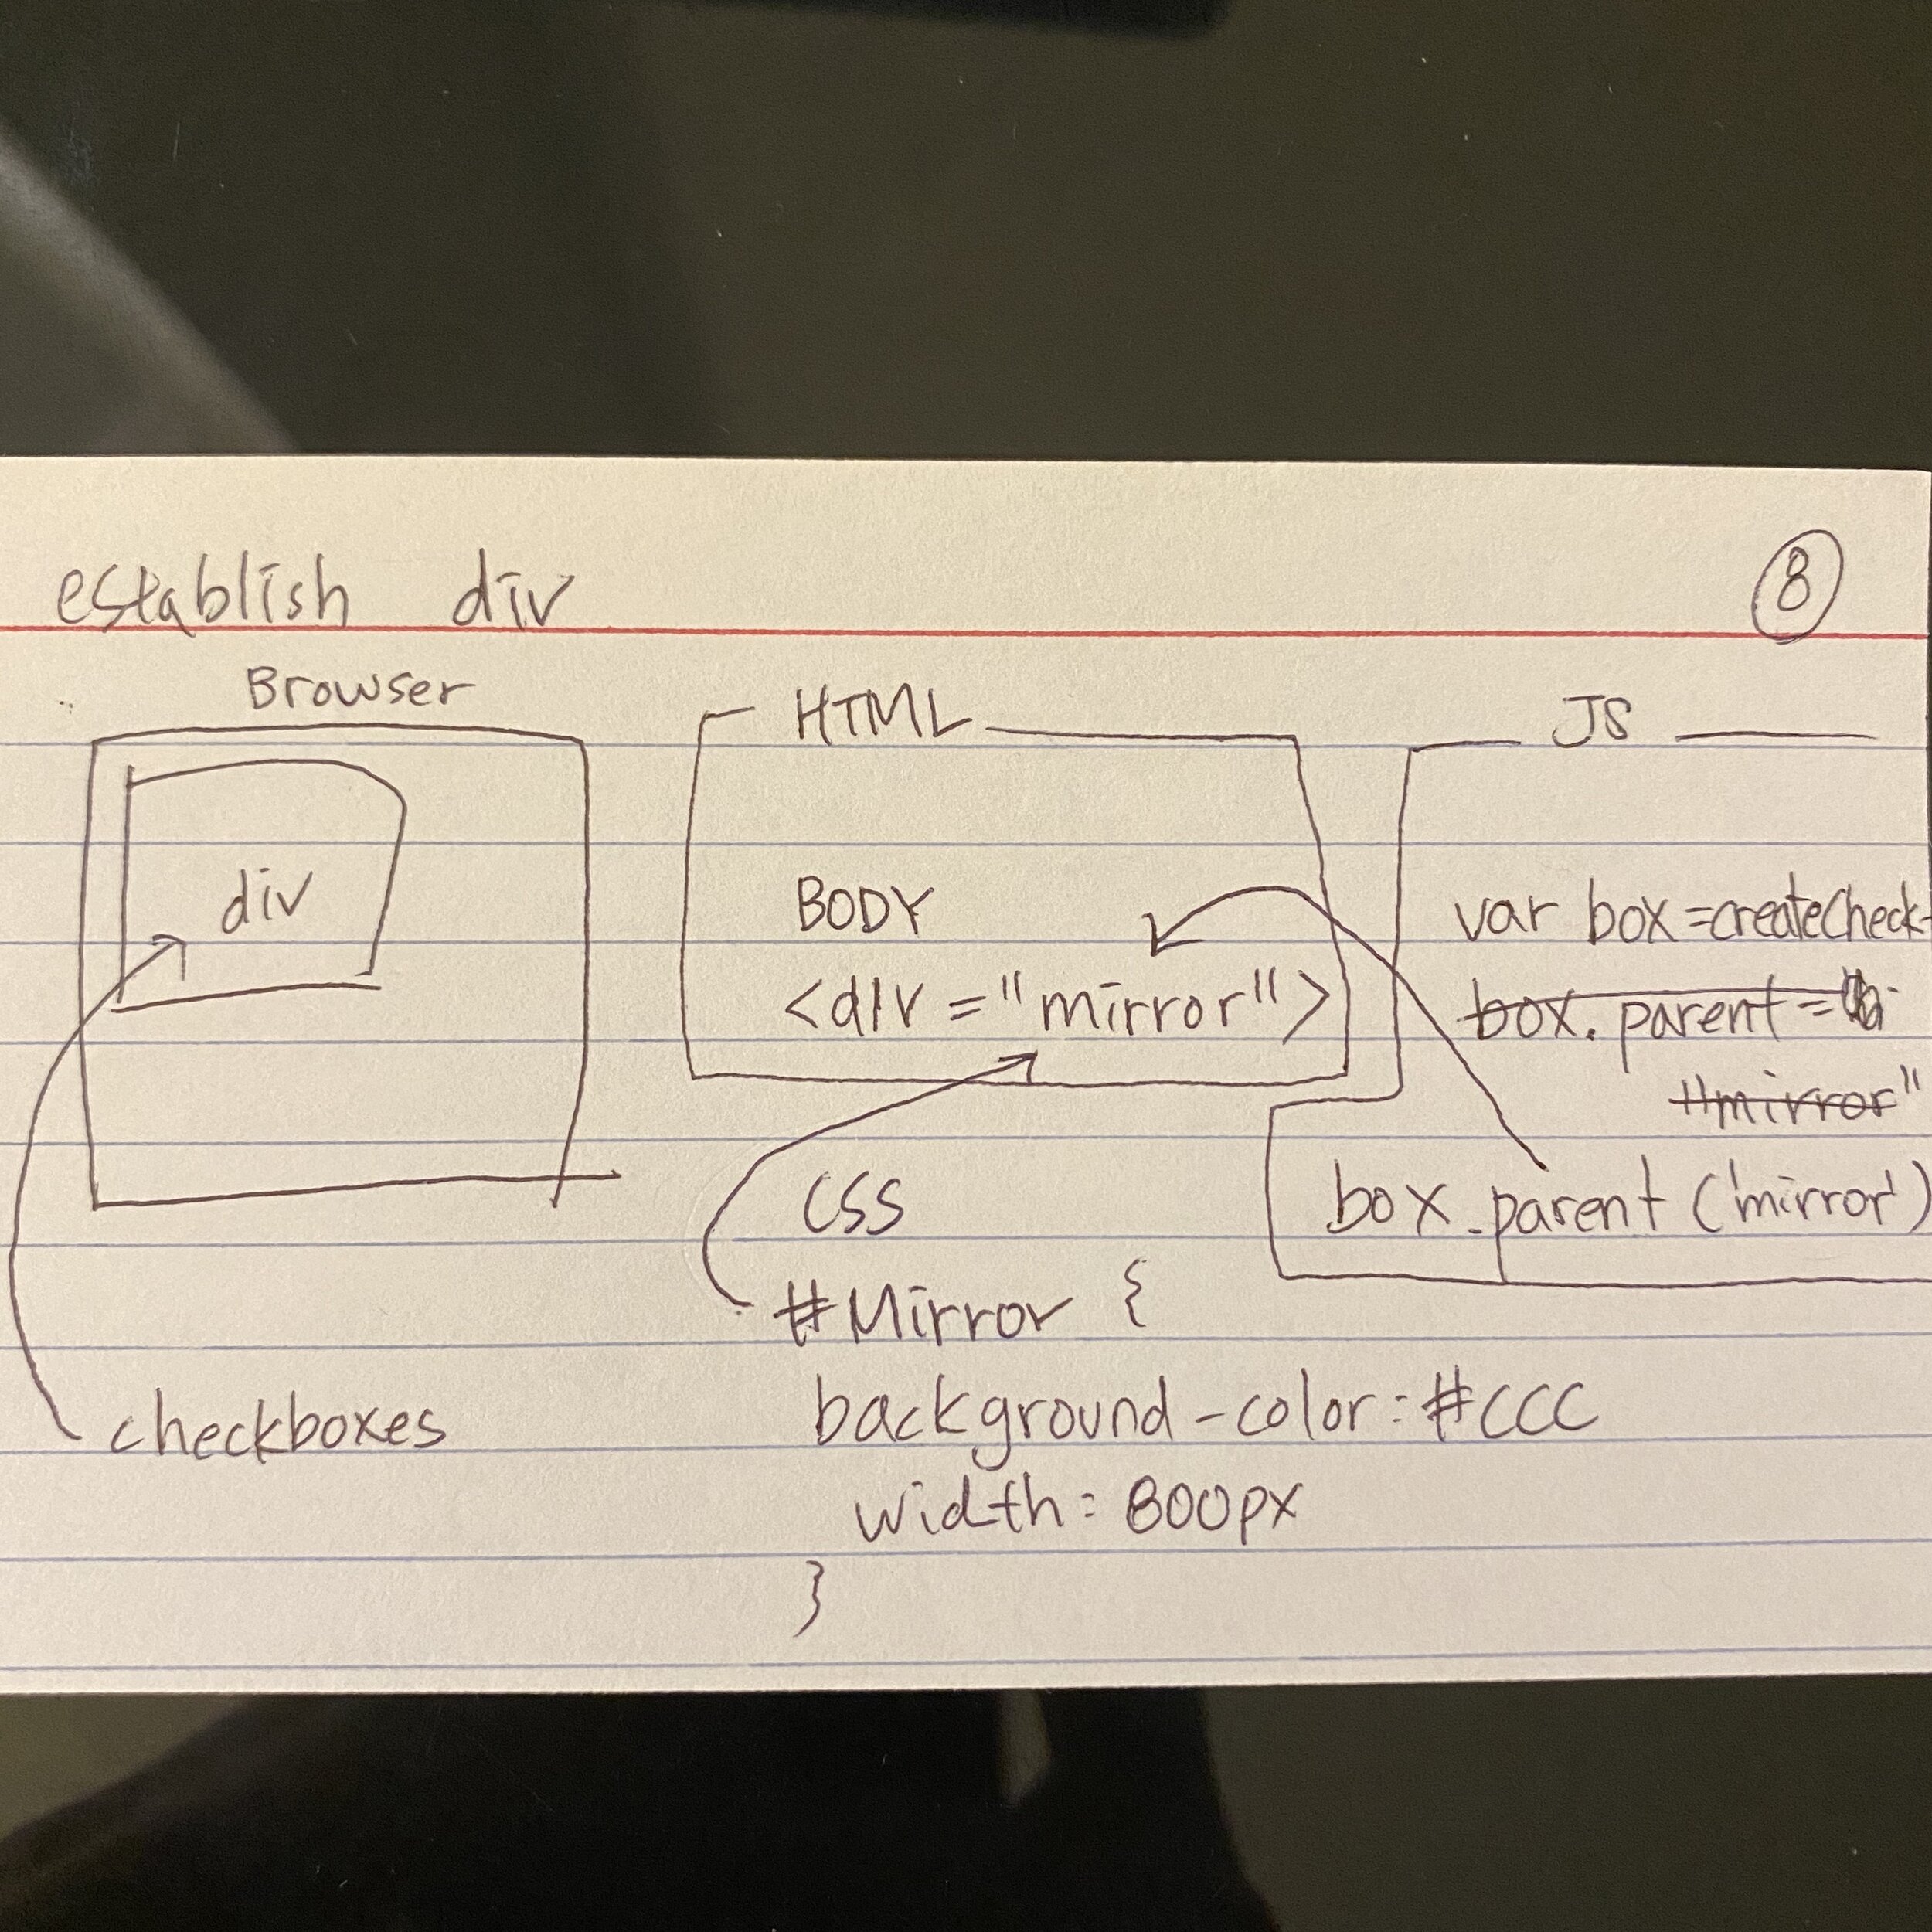 establish div
8
Browser
div
checkboxes
HTML
BODY
<div = "mirror">
CSS
#Mirror {
background-color: #CCC
width: 800px
}
JS
var box = createCheck-
box. parent =
"mirror"
box.parent ('mirror')